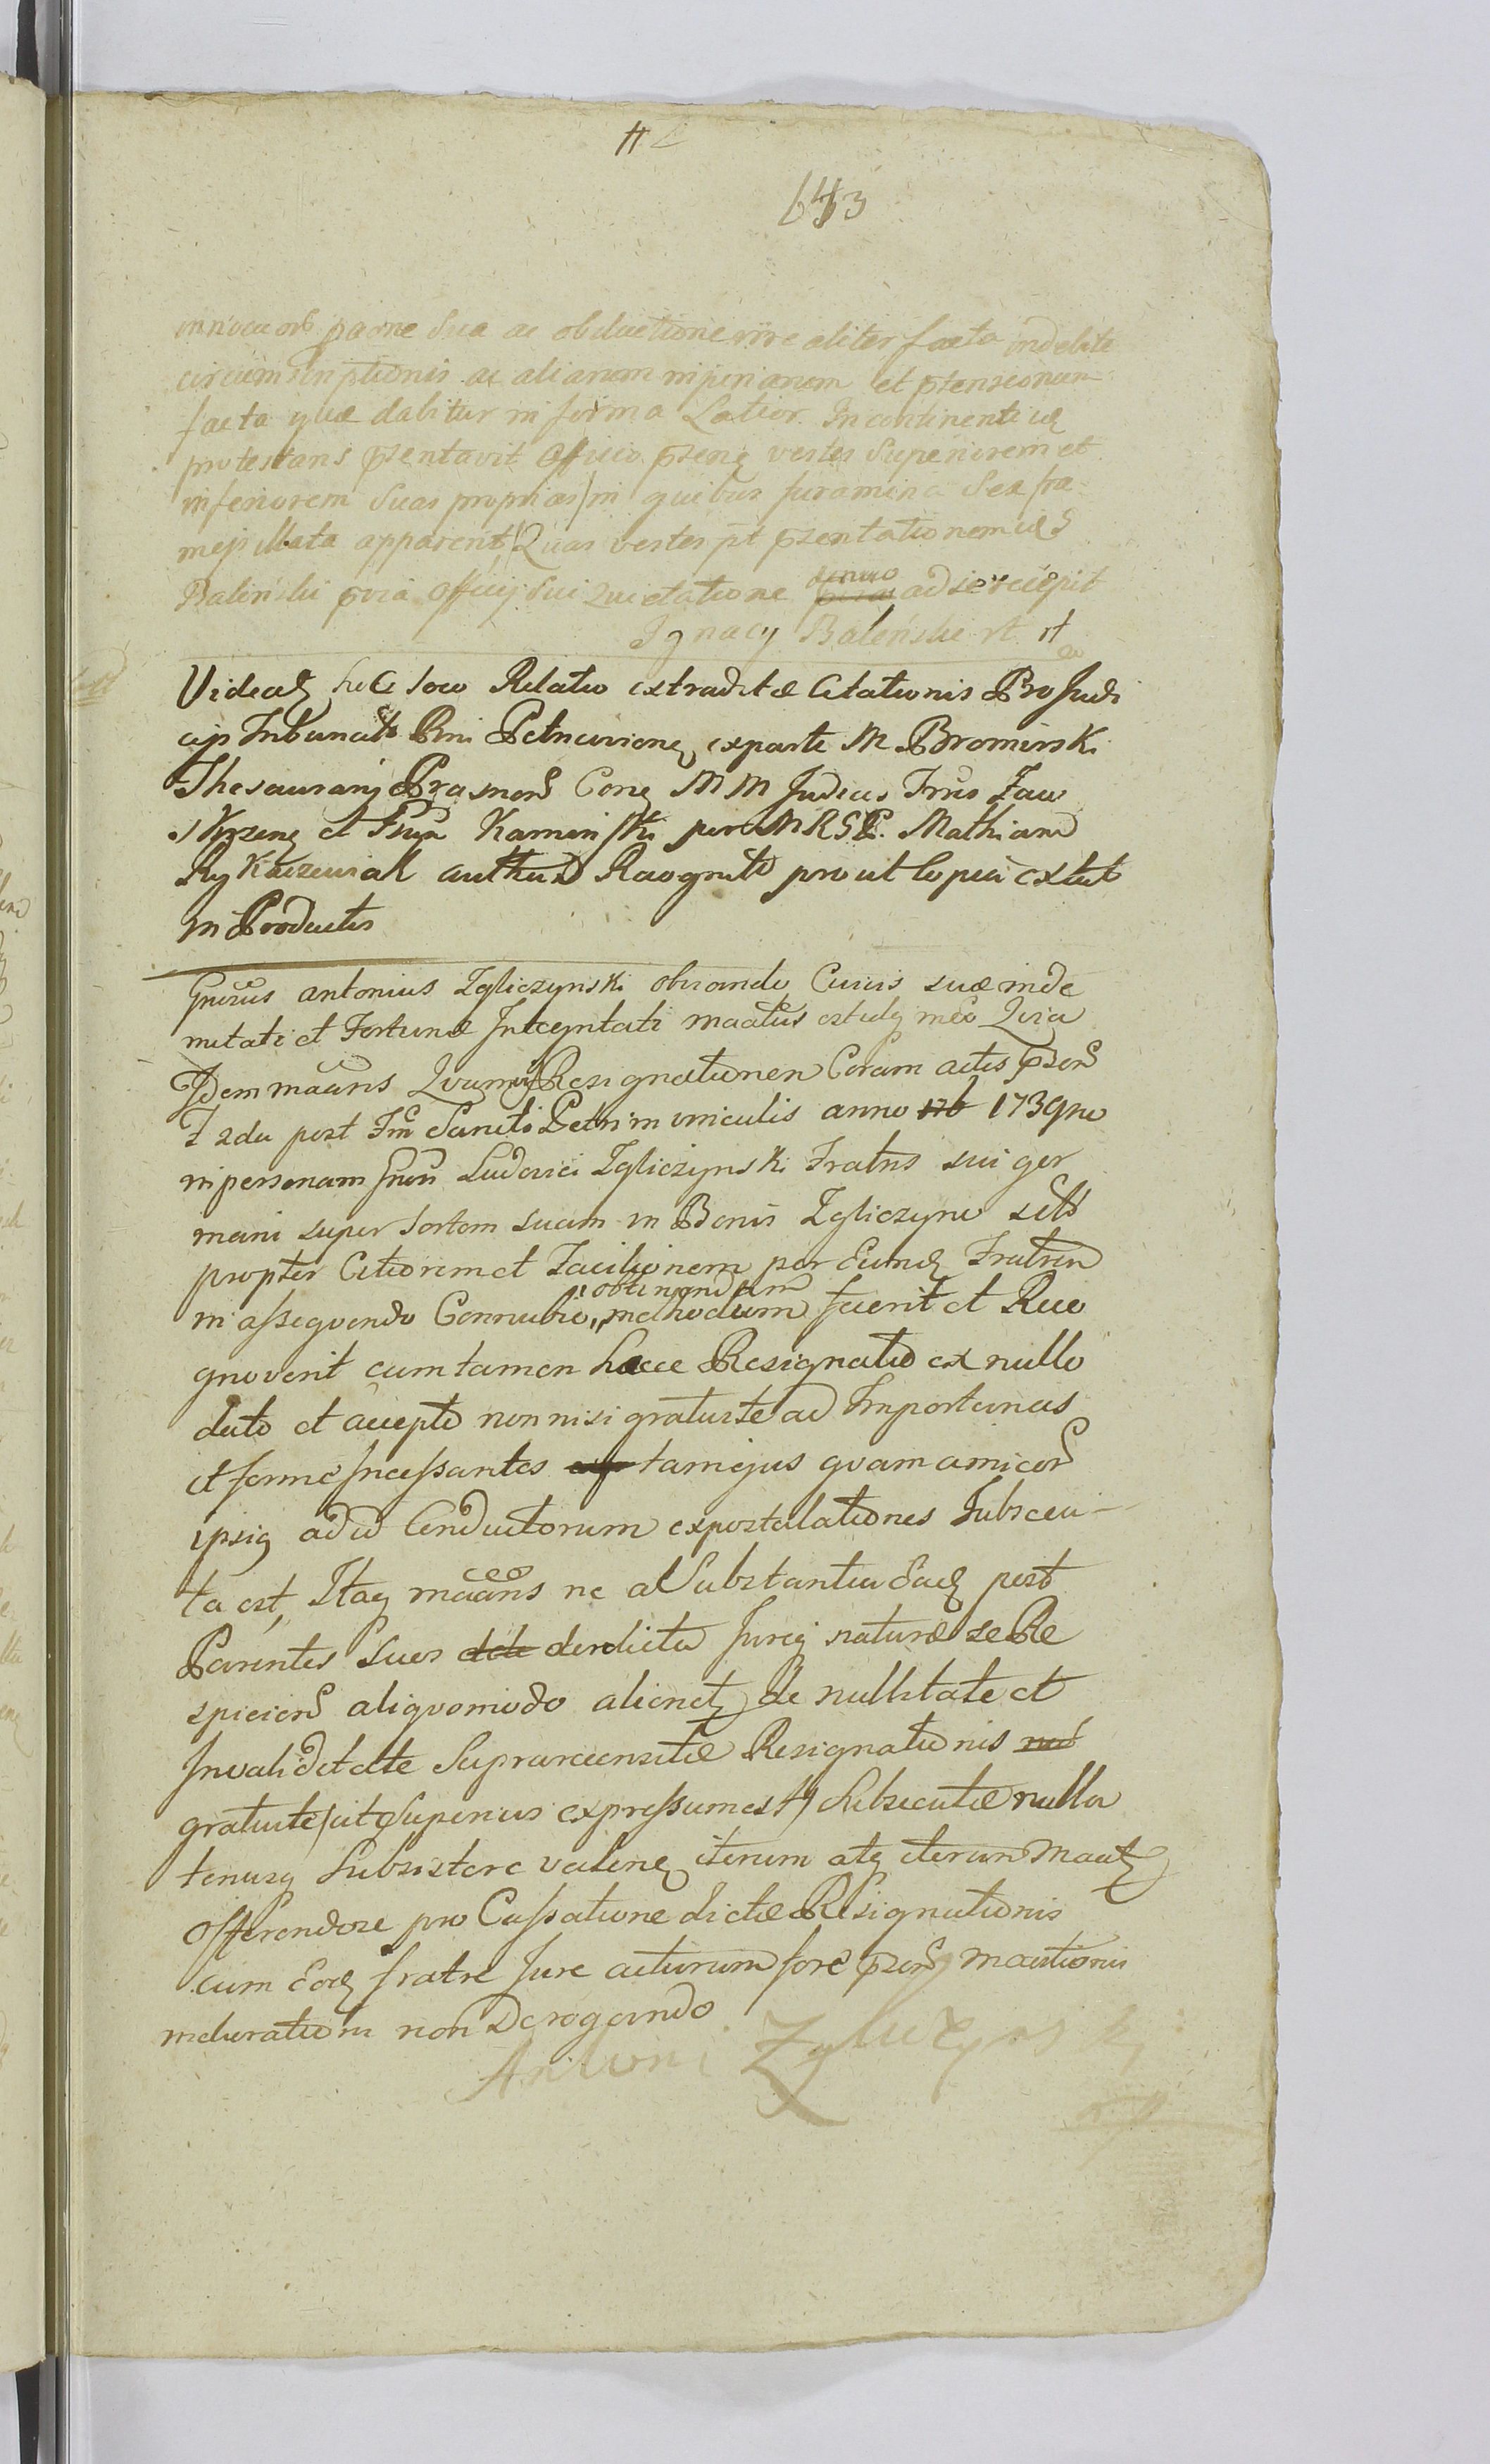 643
pacne sua ac obductione aliter facta indebite
circumscriptionis ac aliarum injuriarum et ptensionum
facta quæ dabitur in forma Latior. Incontinenti idq
protestans pzentavit Officio pzenq vestes Superiorem et
inferiorem Suas proprias in quibus foramina Sex fra
apparent Quas vestes pt pzentationem
Baleński pvia Officij Sui Quietatione denuo ad se recepit
Ignacy Baleński
Videatq hoc loco Relatio extraditæ Citationis Pro Judi
cijs Tribunalis Rni Petricovienq exparte M Bromirski
Thesaurarij Prasnens Conq MM Judicis Zaw
skrzenq et Kaminski per MRSP. Mathiam
Rykaczewiak Recognita prout Copia extat
in Productis
Gnosus antonius Zgliczynski obviando Curiis suæ inde
mnitati et Fortunæ Integritati
Idem Quamvis Resignationem Coram actis pzens
F 2da post Fm Sancti Petri in vinculis anno 176 1739no
in personam Gnosi Ludovici Zgliczynski Fratris sui ger
mani super Sortem suam in Bonis Zgliczyno
propter Citiorem et Faciliorem per Eumdq Fratrem
obtinendum
in assequendo Connubio methodum fecerit et Reco
gnoverit cum tamen hæcce Resignatio ex nullo
dato et accepto non nisi gratuite ad Importunas
et ferme Incessantes tam ejus quam amicors
ipsiq ad id Conductorum expostulationes Subsecu-
ta est, Itaq ne a Substantia Eadq post
Parentes Suos derelicta Jureq naturæ se Re
spiciens aliquomodo alienetq de nullitate et
Invaliditate Suprarecensitæ Resignationis
gratuite ut Superius expressum est Subsecutæ nulla
tenusq Subsistere valenq iterum atq iterum
Offerendo se pro Cassatione dictæ Resignationis
cum Eodq fratre Jure acturum fore pzensq
meliorationi non Derogando
Antoni Zgliczynski